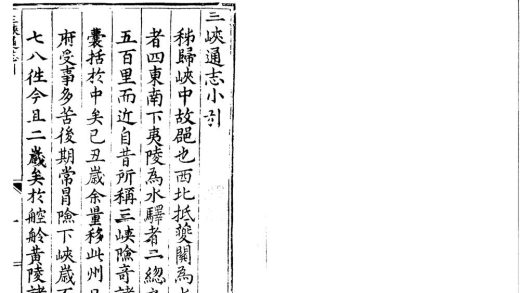 三峽通志小引
秭歸峽中故邑也西北抵夔關為
者四東南下夷陵為水驛者二總
五百里而近自昔所稱三峽險奇諸
囊括於中矣己丑歲余量移此州
府受事多苦後期常冒險下峽歲
七八往今且二歲矣於艟舲黃陵諸
三峽通志